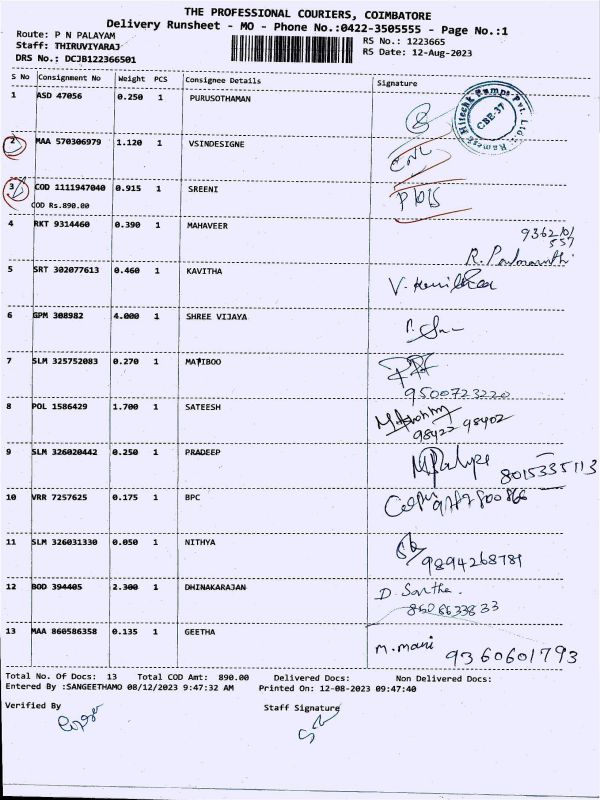 THE PROFESSIONAL COURIERS, COIMBATORE
Delivery Runsheet - MO - Phone No.:0422-3505555 - Page No.:1
Route: P N PALAYAM
Staff: THIRUVIYARAJ
DRS No.: DCJB122366501
RS No.: 1223665
RS Date: 12-Aug-2023
S No Consignment No Weight PCS Consignee Details Signature
1 ASD 47056 0.250 1 PURUSOTHAMAN
Ramesh Hitechk Pumps Pvt. Ltd. CBE-37
2 MAA 570306979 1.120 1 VSINDESIGNE
3 COD 1111947040 0.915 1 SREENI
COD Rs.890.00
4 RKT 9314460 0.390 1 MAHAVEER
5 SRT 302077613 0.460 1 KAVITHA
6 GPM 308982 4.000 1 SHREE VIJAYA
7 SLM 325752083 0.270 1 MATIBOO
9500723220
8 POL 1586429 1.700 1 SATEESH
98422 98402
9 SLM 326020442 0.250 1 PRADEEP
8015335113
10 VRR 7257625 0.175 1 BPC
11 SLM 326031330 0.050 1 NITHYA
9894268781
12 BOD 394405 2.300 1 DHINAKARAJAN
D. Santha
13 MAA 860586358 0.135 1 GEETHA
M. mani 9360601793
Total No. Of Docs: 13 Total COD Amt: 890.00 Delivered Docs: Non Delivered Docs:
Entered By :SANGEETHAMO 08/12/2023 9:47:32 AM Printed On: 12-08-2023 09:47:40
Verified By Staff Signature